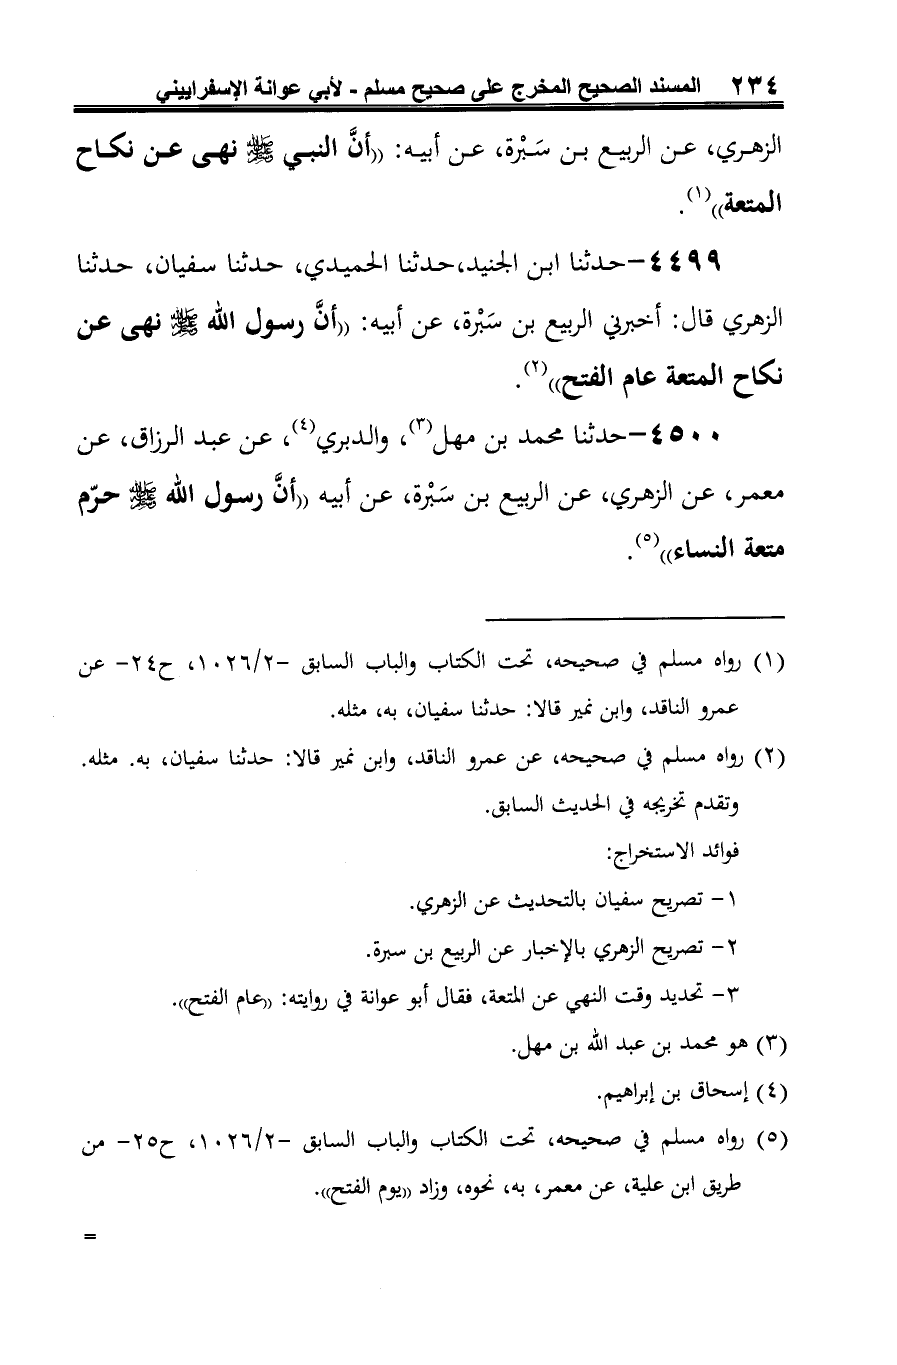 ٢٣٤ المسند الصحيح المخرج على صحيح مسلم - لأبي عوانة الإسفراييني
الزهري، عن الربيع بن سَبْرة، عن أبيه: ((أنَّ النبي ﷺ نهى عن نكاح
المتعة))(١).
٤٤٩٩–حدثنا ابن الجنيد،حدثنا الحميدي، حدثنا سفيان، حدثنا
الزهري قال: أخبرني الربيع بن سَبْرة، عن أبيه: ((أنَّ رسول الله ﷺ نهى عن
نكاح المتعة عام الفتح))(٢).
٤٥٠٠–حدثنا محمد بن مهل(٣)، والدبري(٤)، عن عبد الرزاق، عن
معمر، عن الزهري، عن الربيع بن سَبْرة، عن أبيه ((أنَّ رسول الله ﷺ حرّم
متعة النساء))(٥).
(١) رواه مسلم في صحيحه، تحت الكتاب والباب السابق -١٠٢٦/٢، ح٢٤- عن
عمرو الناقد، وابن نمير قالا: حدثنا سفيان، به، مثله.
(٢) رواه مسلم في صحيحه، عن عمرو الناقد، وابن نمير قالا: حدثنا سفيان، به. مثله.
وتقدم تخريجه في الحديث السابق.
فوائد الاستخراج:
١- تصريح سفيان بالتحديث عن الزهري.
٢- تصريح الزهري بالإخبار عن الربيع بن سبرة.
٣- تحديد وقت النهي عن المتعة، فقال أبو عوانة في روايته: ((عام الفتح)).
(٣) هو محمد بن عبد الله بن مهل.
(٤) إسحاق بن إبراهيم.
(٥) رواه مسلم في صحيحه، تحت الكتاب والباب السابق -١٠٢٦/٢، ح٢٥- من
طريق ابن علية، عن معمر، به، نحوه، وزاد ((يوم الفتح)).
=